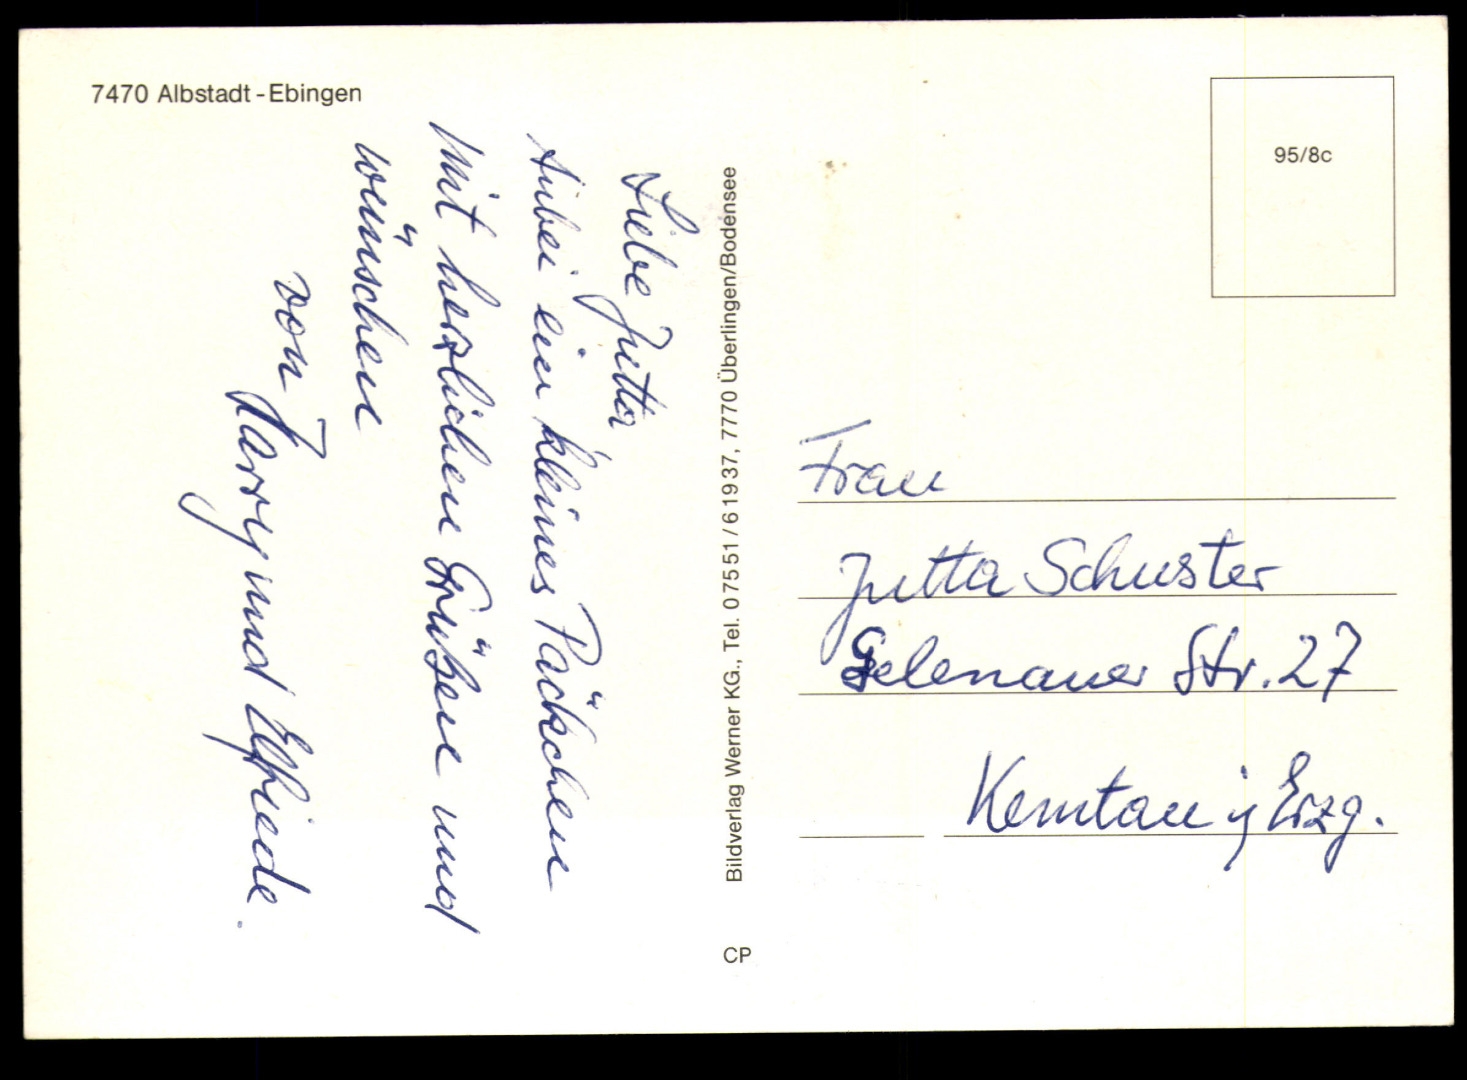 7470 Albstadt - Ebingen
Liebe Jutta
Anbei ein kleines Päckchen
Mit herzlichen Grüßen und
wünschen
von Harry und Elfriede.
Bildverlag Werner KG., Tel. 07551/61937, 7770 Überlingen/Bodensee
CP
95/8c
Frau
Jutta Schuster
Gelenauer Str. 27
Kemtau i/ Erzg.